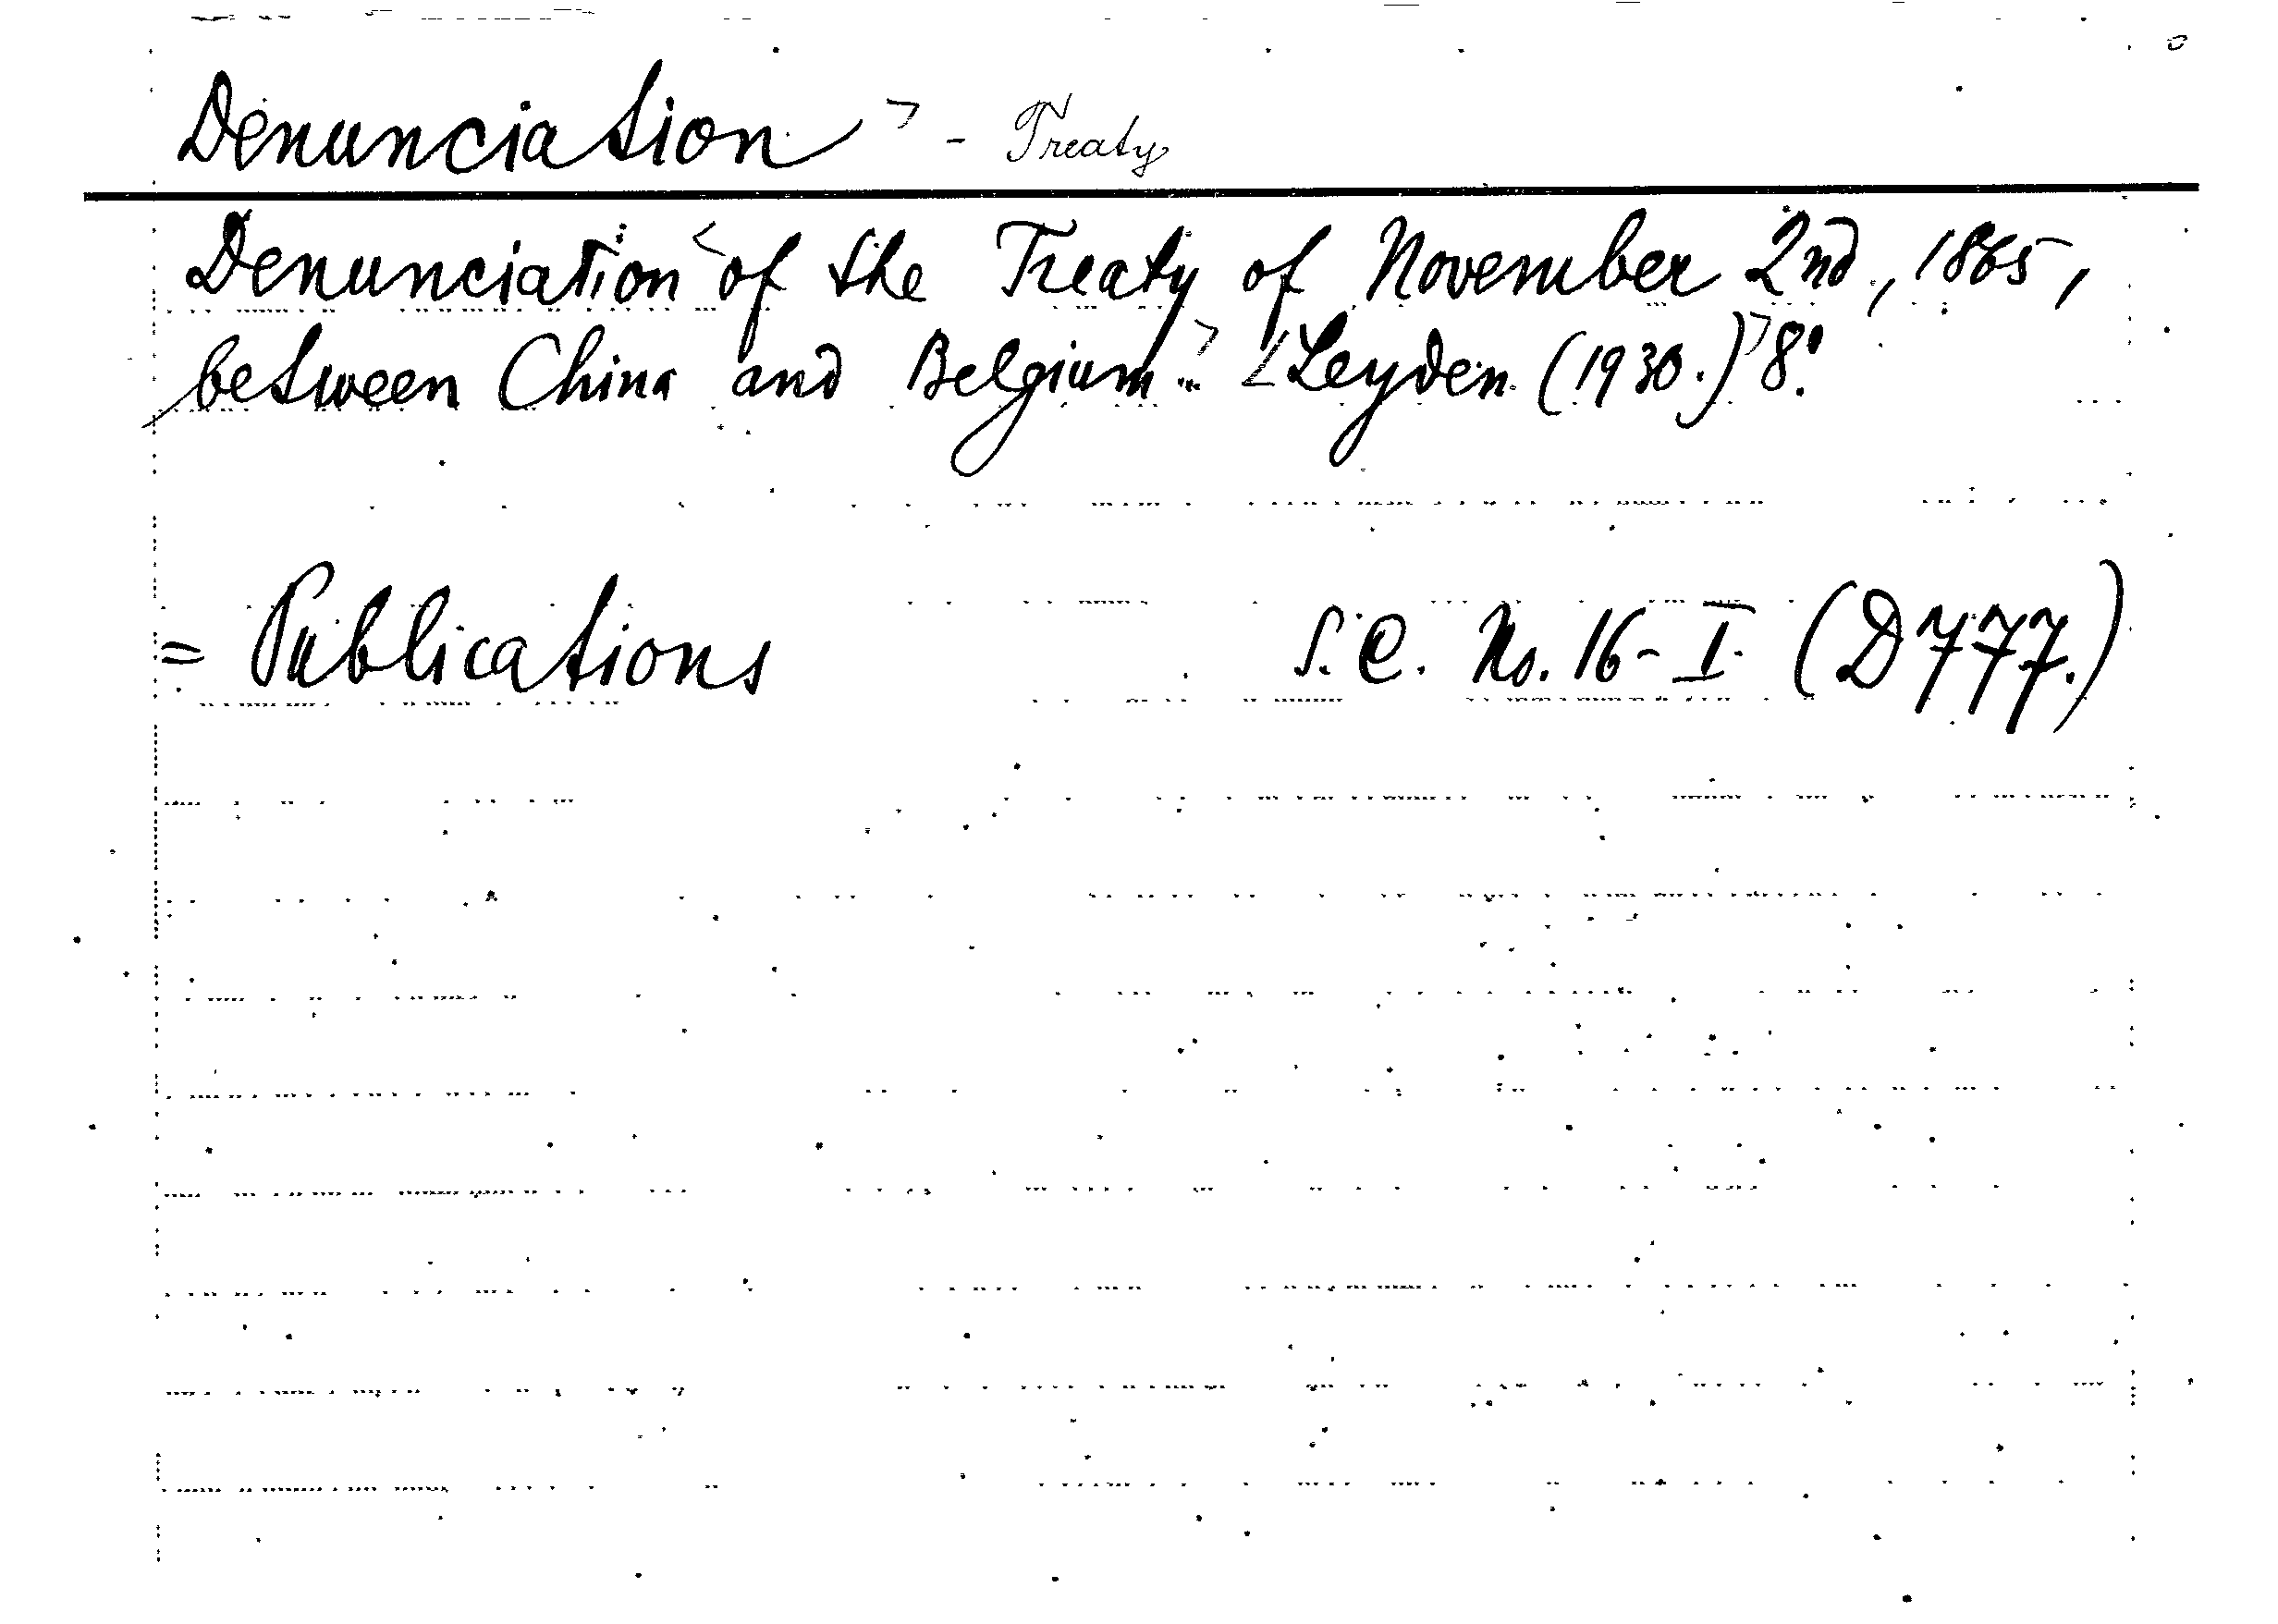 Denunciation - Treaty
Denunciation of the Treaty of November 2nd, 1865,
between China and Belgium... Leyden (1930.) 8°.
= Publications S.C. No. 16 - I. (D777.)